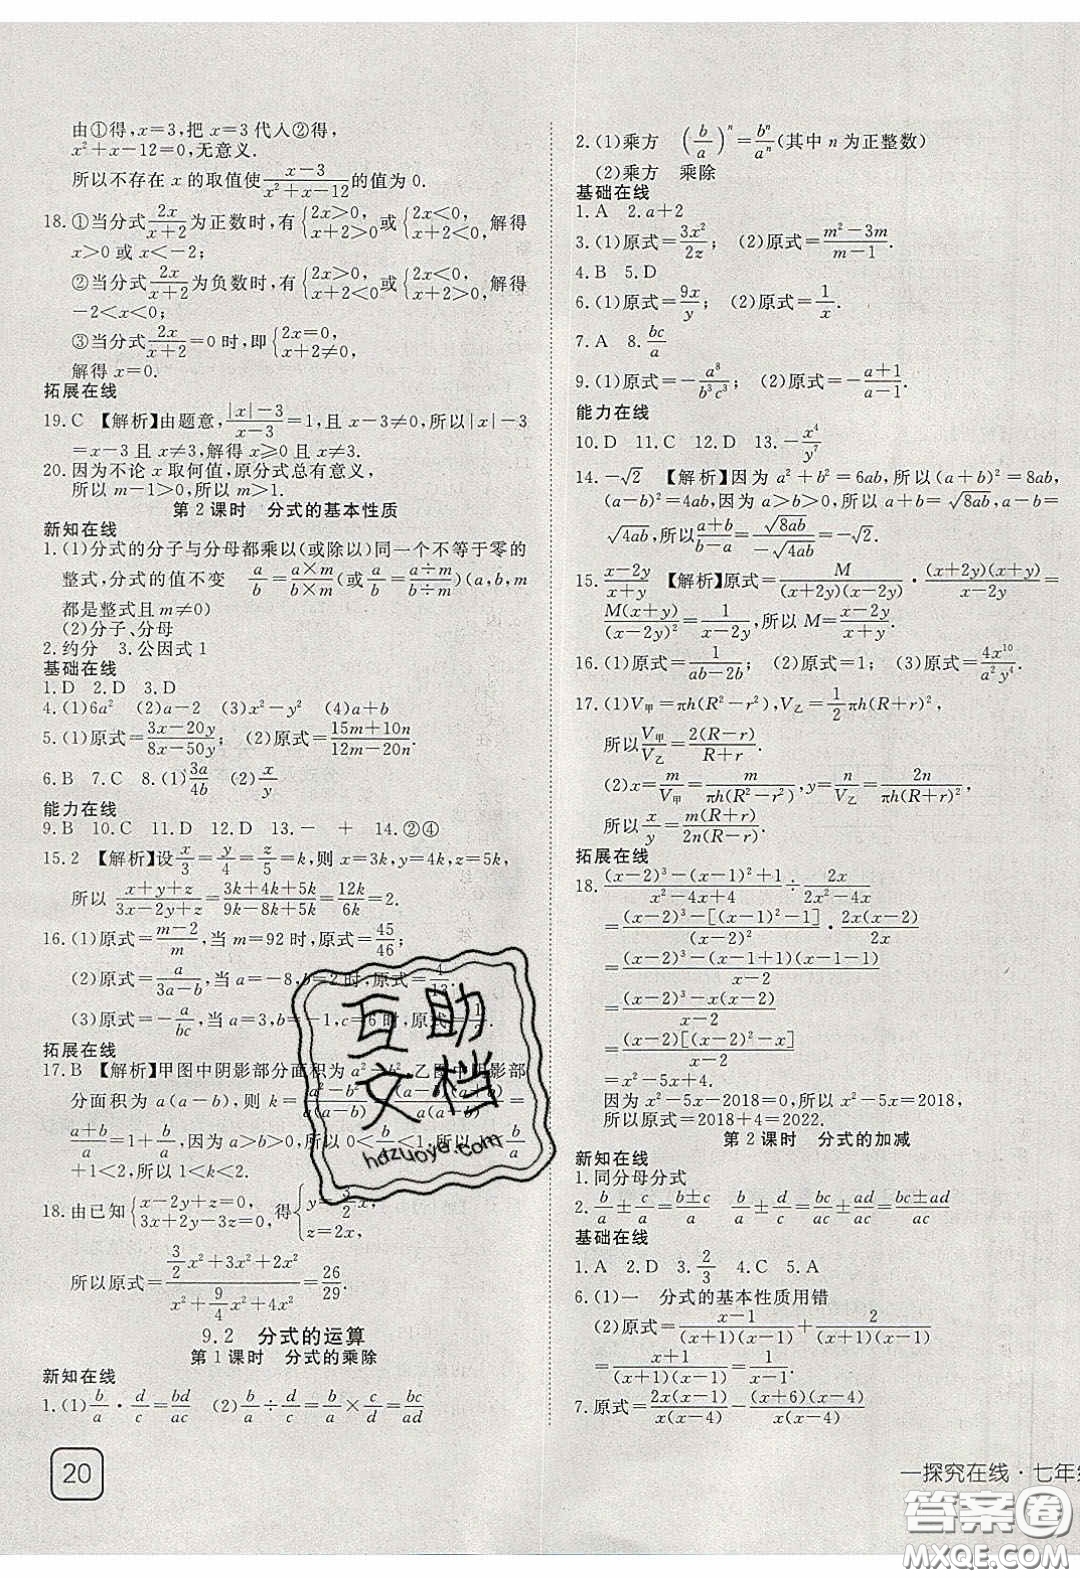 由①得,x=3,把 x=3 代入②得,
x²+x-12=0,无意义.
所以不存在 x 的取值使(x-3)/(x²+x-12)的值为 0.
18.①当分式2x/(x+2)为正数时,有{2x>0, x+2>0或{2x<0, x+2<0,解得
x>0 或 x<-2;
②当分式2x/(x+2)为负数时,有{2x>0, x+2<0或{2x<0, x+2>0,解得
-2<x<0;
③当分式2x/(x+2)=0 时,即{2x=0, x+2≠0,
解得 x=0.
拓展在线
19.C 【解析】由题意,(|x|-3)/(x-3)=1,且 x-3≠0,所以|x|-3
=x-3 且 x≠3,解得 x≥0 且 x≠3.
20.因为不论 x 取何值,原分式总有意义,
所以 m-1>0,所以 m>1.
第 2 课时 分式的基本性质
新知在线
1.(1)分式的分子与分母都乘以(或除以)同一个不等于零的
整式,分式的值不变 a/b=(a×m)/(b×m)(或a/b=(a÷m)/(b÷m))(a,b,m
都是整式且 m≠0)
(2)分子、分母
2.约分 3.公因式 1
基础在线
1.D 2.D 3.D
4.(1)6a² (2)a-2 (3)x²-y² (4)a+b
5.(1)原式=(3x-20y)/(8x-50y); (2)原式=(15m+10n)/(12m-20n).
6.B 7.C 8.(1)3a/4b (2)x/y
能力在线
9.B 10.C 11.D 12.D 13.- + 14.②④
15.2 【解析】设x/3=y/4=z/5=k,则 x=3k,y=4k,z=5k,
所以(x+y+z)/(3x-2y+z)=(3k+4k+5k)/(9k-8k+5k)=12k/6k=2.
16.(1)原式=(m-2)/m,当 m=92 时,原式=45/46;
(2)原式=a/(3a-b),当 a=-8,b=2 时,原式=4/13.
(3)原式=-a/bc,当 a=3,b=-1,c=6 时,原式=
拓展在线
17.B 【解析】甲图中阴影部分面积为 a²-b²,乙图中阴影部
分面积为 a(a-b),则 k=(a²-b²)/a(a-b)=(a-b)(a+b)/a(a-b)=
(a+b)/a=1+b/a,因为 a>b>0,所以 0<b/a<1,所以 1<b/a
+1<2,所以 1<k<2.
18.由已知{x-2y+z=0, 3x+2y-7z=0,得{y=3/2x,
所以原式=(3/2x²+3x²+2x²)/(x²+9/4x²+4x²)=26/29.
9.2 分式的运算
第 1 课时 分式的乘除
新知在线
1.(1)b/a·d/c=bd/ac (2)b/a÷d/c=b/a×c/d=bc/ad
20
2.(1)乘方 (b/a)ⁿ=bⁿ/aⁿ(其中 n 为正整数)
(2)乘方 乘除
基础在线
1.A 2.a+2
3.(1)原式=3x²/2z; (2)原式=(m²-3m)/(m-1).
4.B 5.D
6.(1)原式=9x/y; (2)原式=1/x.
7.A 8.bc/a
9.(1)原式=-a⁸/b³c³; (2)原式=-(a+1)/(a-1).
能力在线
10.D 11.C 12.D 13.-x⁴/y⁷
14.-√2 【解析】因为 a²+b²=6ab,所以(a+b)²=8ab,
(a-b)²=4ab,又因为 a>b>0,所以 a+b=√8ab,a-b=
√4ab,所以(a+b)/(b-a)=√8ab/-√4ab=-√2.
15.(x-2y)/(x+y) 【解析】原式=M/(x+2y)(x-2y)·(x+2y)(x+y)/(x-2y)=
M(x+y)/(x-2y)²=1/(x-2y),所以 M=(x-2y)/(x+y).
16.(1)原式=1/(ab-2b);(2)原式=4x¹⁰/a²y⁴.
17.(1)V甲=πh(R²-r²),V乙=1/2πh(R+r)²,
所以V甲/V乙=2(R-r)/(R+r).
(2)x=m/V甲=m/πh(R²-r²),y=n/V乙=2n/πh(R+r)²,
所以x/y=m(R+r)/2n(R-r).
拓展在线
18.((x-2)³-(x-1)²+1)/(x²-4x+4)÷2x/(2x²-4x)
=((x-2)³-[(x-1)²-1])/(x-2)²·2x(x-2)/2x
=((x-2)³-(x-1+1)(x-1-1))/(x-2)
=((x-2)³-x(x-2))/(x-2)
=(x-2)[(x-2)²-x]/(x-2)
=x²-5x+4.
因为 x²-5x-2018=0,所以 x²-5x=2018,
所以原式=2018+4=2022.
第 2 课时 分式的加减
新知在线
1.同分母分式
2.b/a±c/a=(b±c)/a b/a±d/c=bc/ac±ad/ac=(bc±ad)/ac
基础在线
1.A 2.D 3.2/3 4.C 5.A
6.(1)一 分式的基本性质用错
(2)原式=(x-1)/(x+1)(x-1)+2/(x+1)(x-1)
=(x+1)/(x+1)(x-1)=1/(x-1).
7.原式=2x(x-1)/x(x-4)-(x+6)(x-4)/x(x-4)
一探究在线·七年
互助
文档
hdzuoye.com
答案圈
MXQE.COM